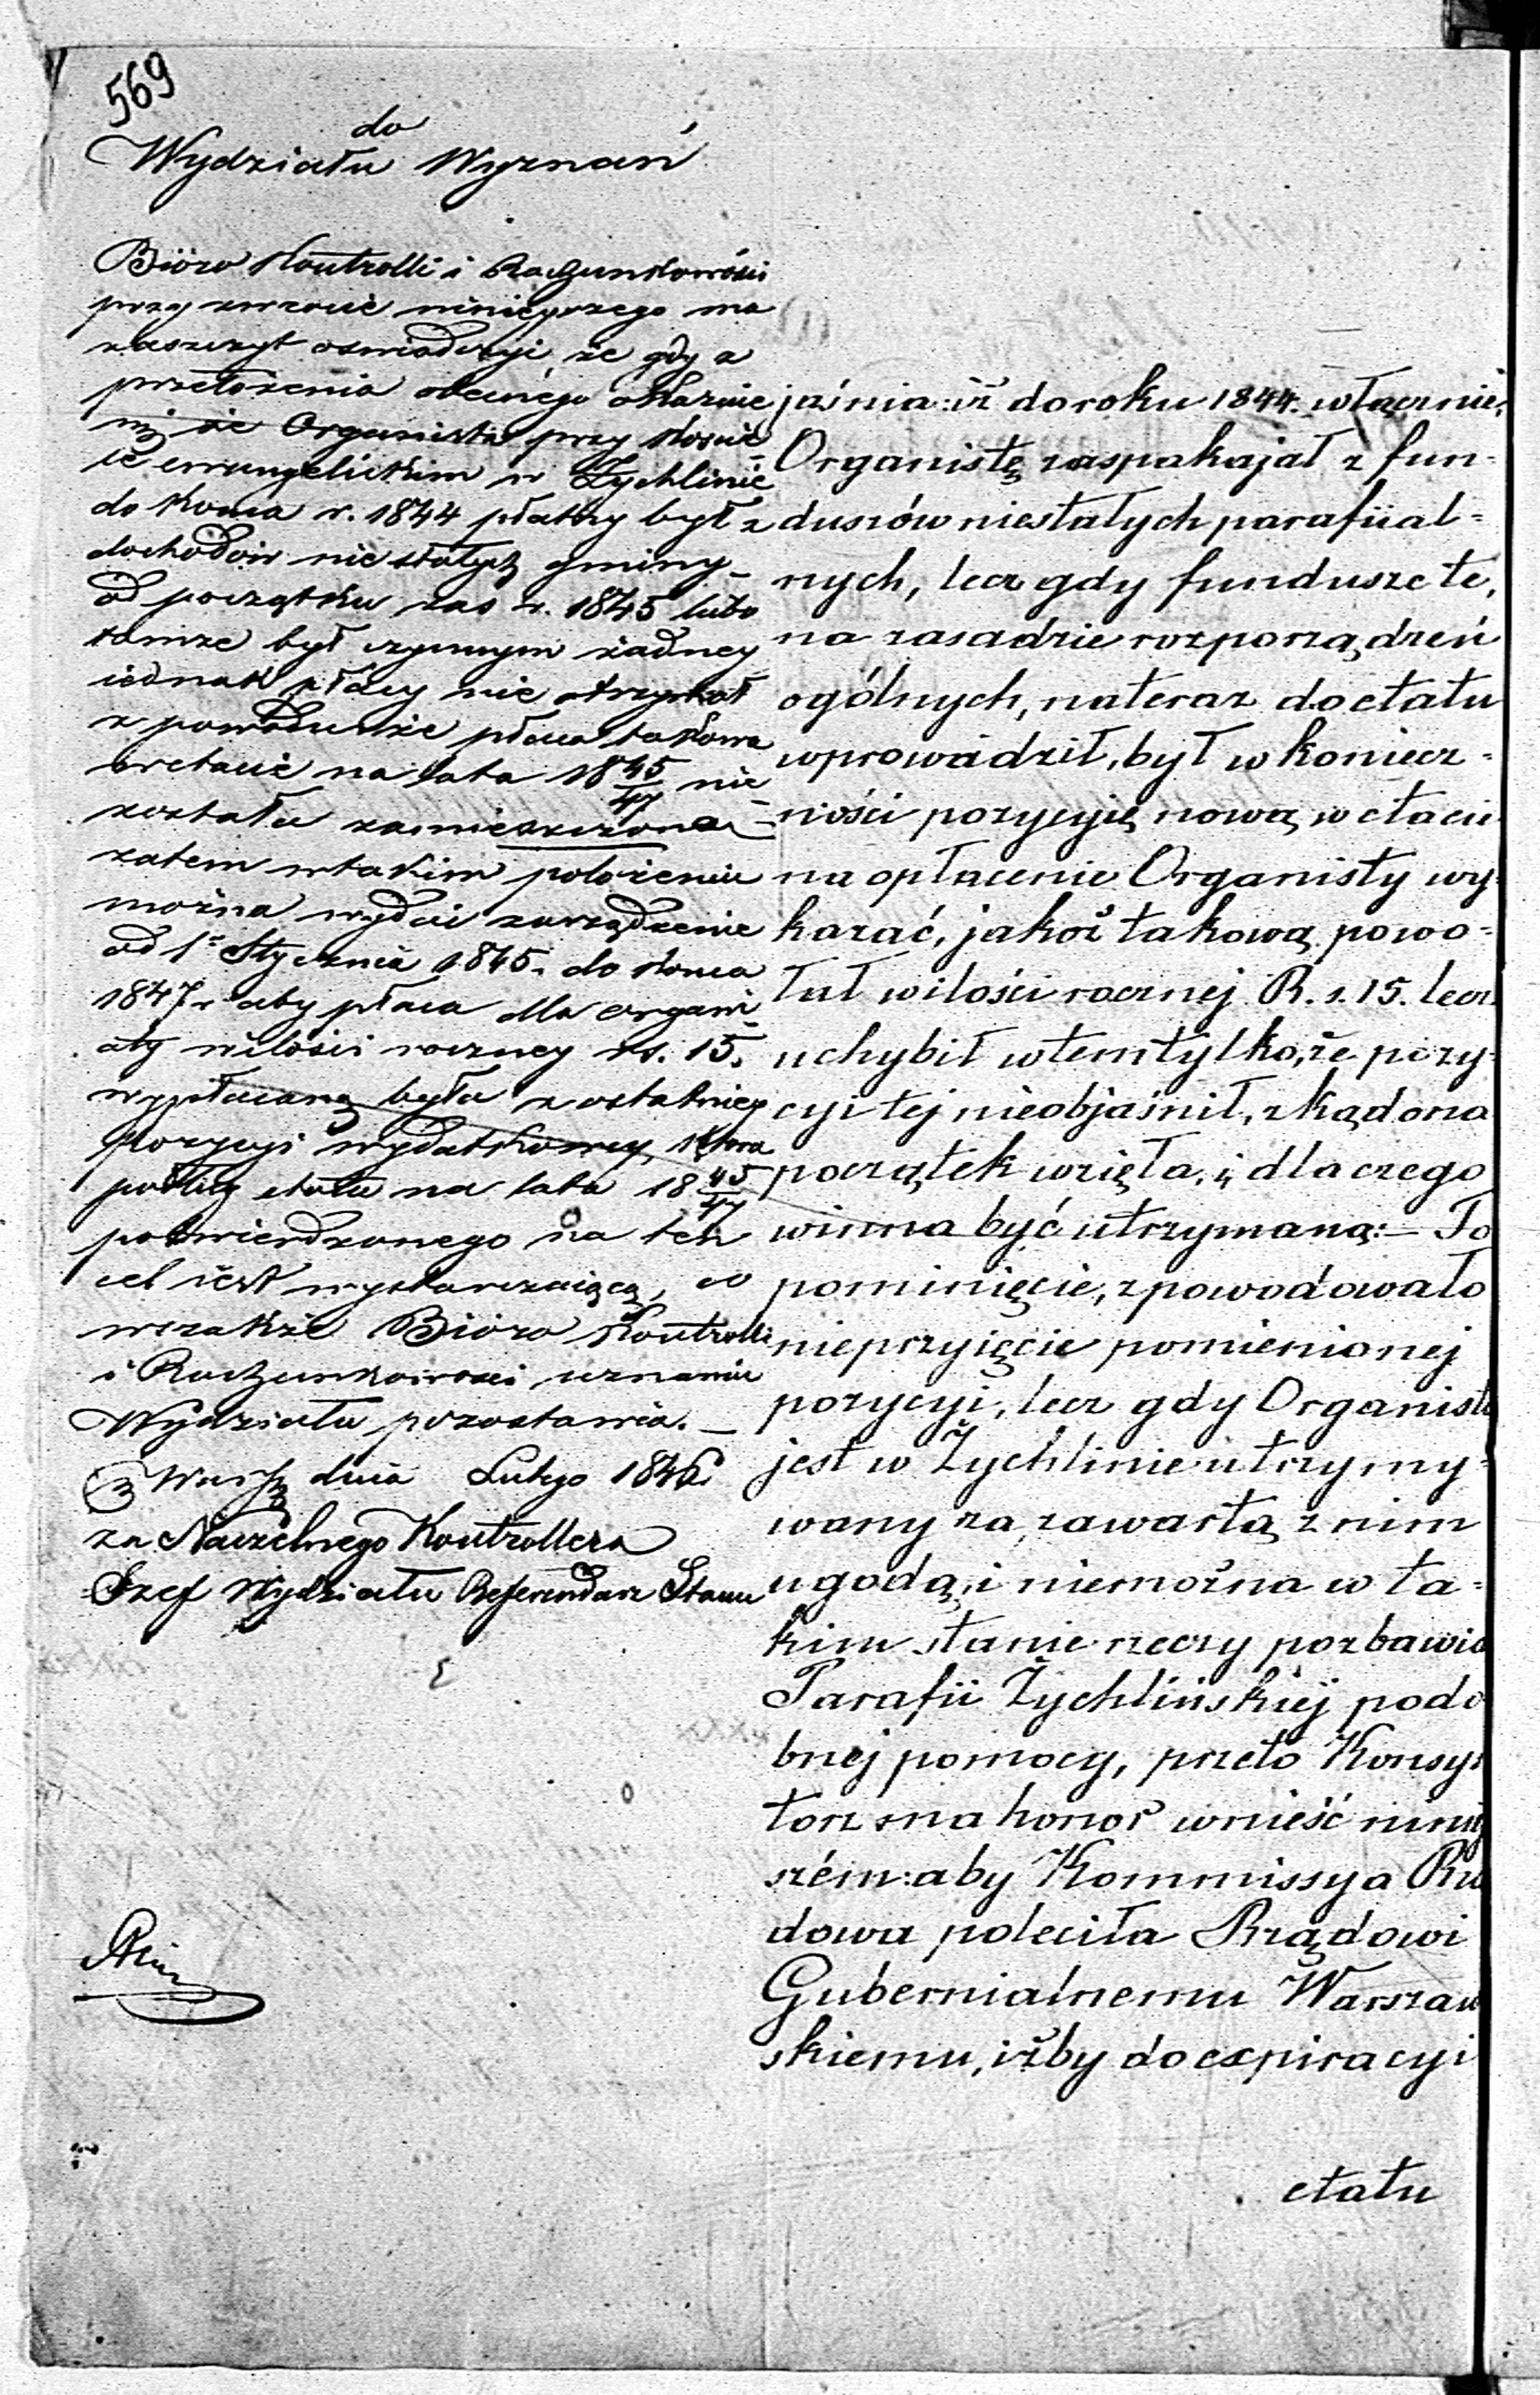 569
do
Wydziału Wyznań
Biöro Kontrolli i Rachunkowości
przy zwrocie ninieyszego ma
zaszczyt oswiadczyć że gdy z
przełożenia obecnego okazuie
się że Organista przy koście
le ewangelickim w Żychlinie
do końca r. 1844 płatny był z
dochodów nie stałych gminy_
od początku zas r. 1845 lubo
tamże był czynnym żadney
iednak płacy nie otrzymał
z powodu że płaca takowa
w etacie na lata 18 45/47 nie
została zamieszczona_
zatem w takim położeniu
można wydać zarządzenie
od 1º Stycznia 1845. do końca
1847 r. aby płaca dla organi
sty w ilości roczney rs. 15.
wypłacaną była z ostatniey
pozycyi wydatkowey, która
podług etatu na lata 18 45/47
potwierdzonego na ten
cel iest wystarczaiącą, co
wszakże Bióro Kontrolli
i Rachunkowości uznaniu
Wydziału pozostawia._
3 Warsz dnia Lutego 1846
za Naczelnego Kontrollera
Szef Wydziału Referendarz Stanu
jaśnia: iż do roku 1844. włącznie,
Organistę zaspakajał z fun-
duszów niestałych parafiial=
nych, lecz gdy fundusze te,
na zasadzie rozporządzeń
ogólnych, nateraz do etatu
wprowadził, był w koniecz-
ności pozycyię nową w etacie
na opłacenie Organisty wy-
kazać, jakoż takową powo-
łał w ilości rocznej R. s. 15. lecz
uchybił w tem tylko, że pozy-
cyi tej nieobjaśnił, zkąd ona
początek wzięła, i dlaczego
winna być utrzymaną:— To
pominięcie, zpowodowało
nieprzyięcie pomienionej
pozycyi, lecz gdy Organista
jest w Żychlinie utrzymy-
wany za zawartą z nim
ugodą, i niemożna w ta-
kim stanie rzeczy pozbawić
Parafii Żychlińskiéj podo
bnej pomocy, przeto Konsys
torz ma honor wnieść niniej
szém: aby Kommissya Rzą
dowa poleciła Rządowi
Gubernialnemu Warszaw
skiemu, iżby do expiracyi
etatu